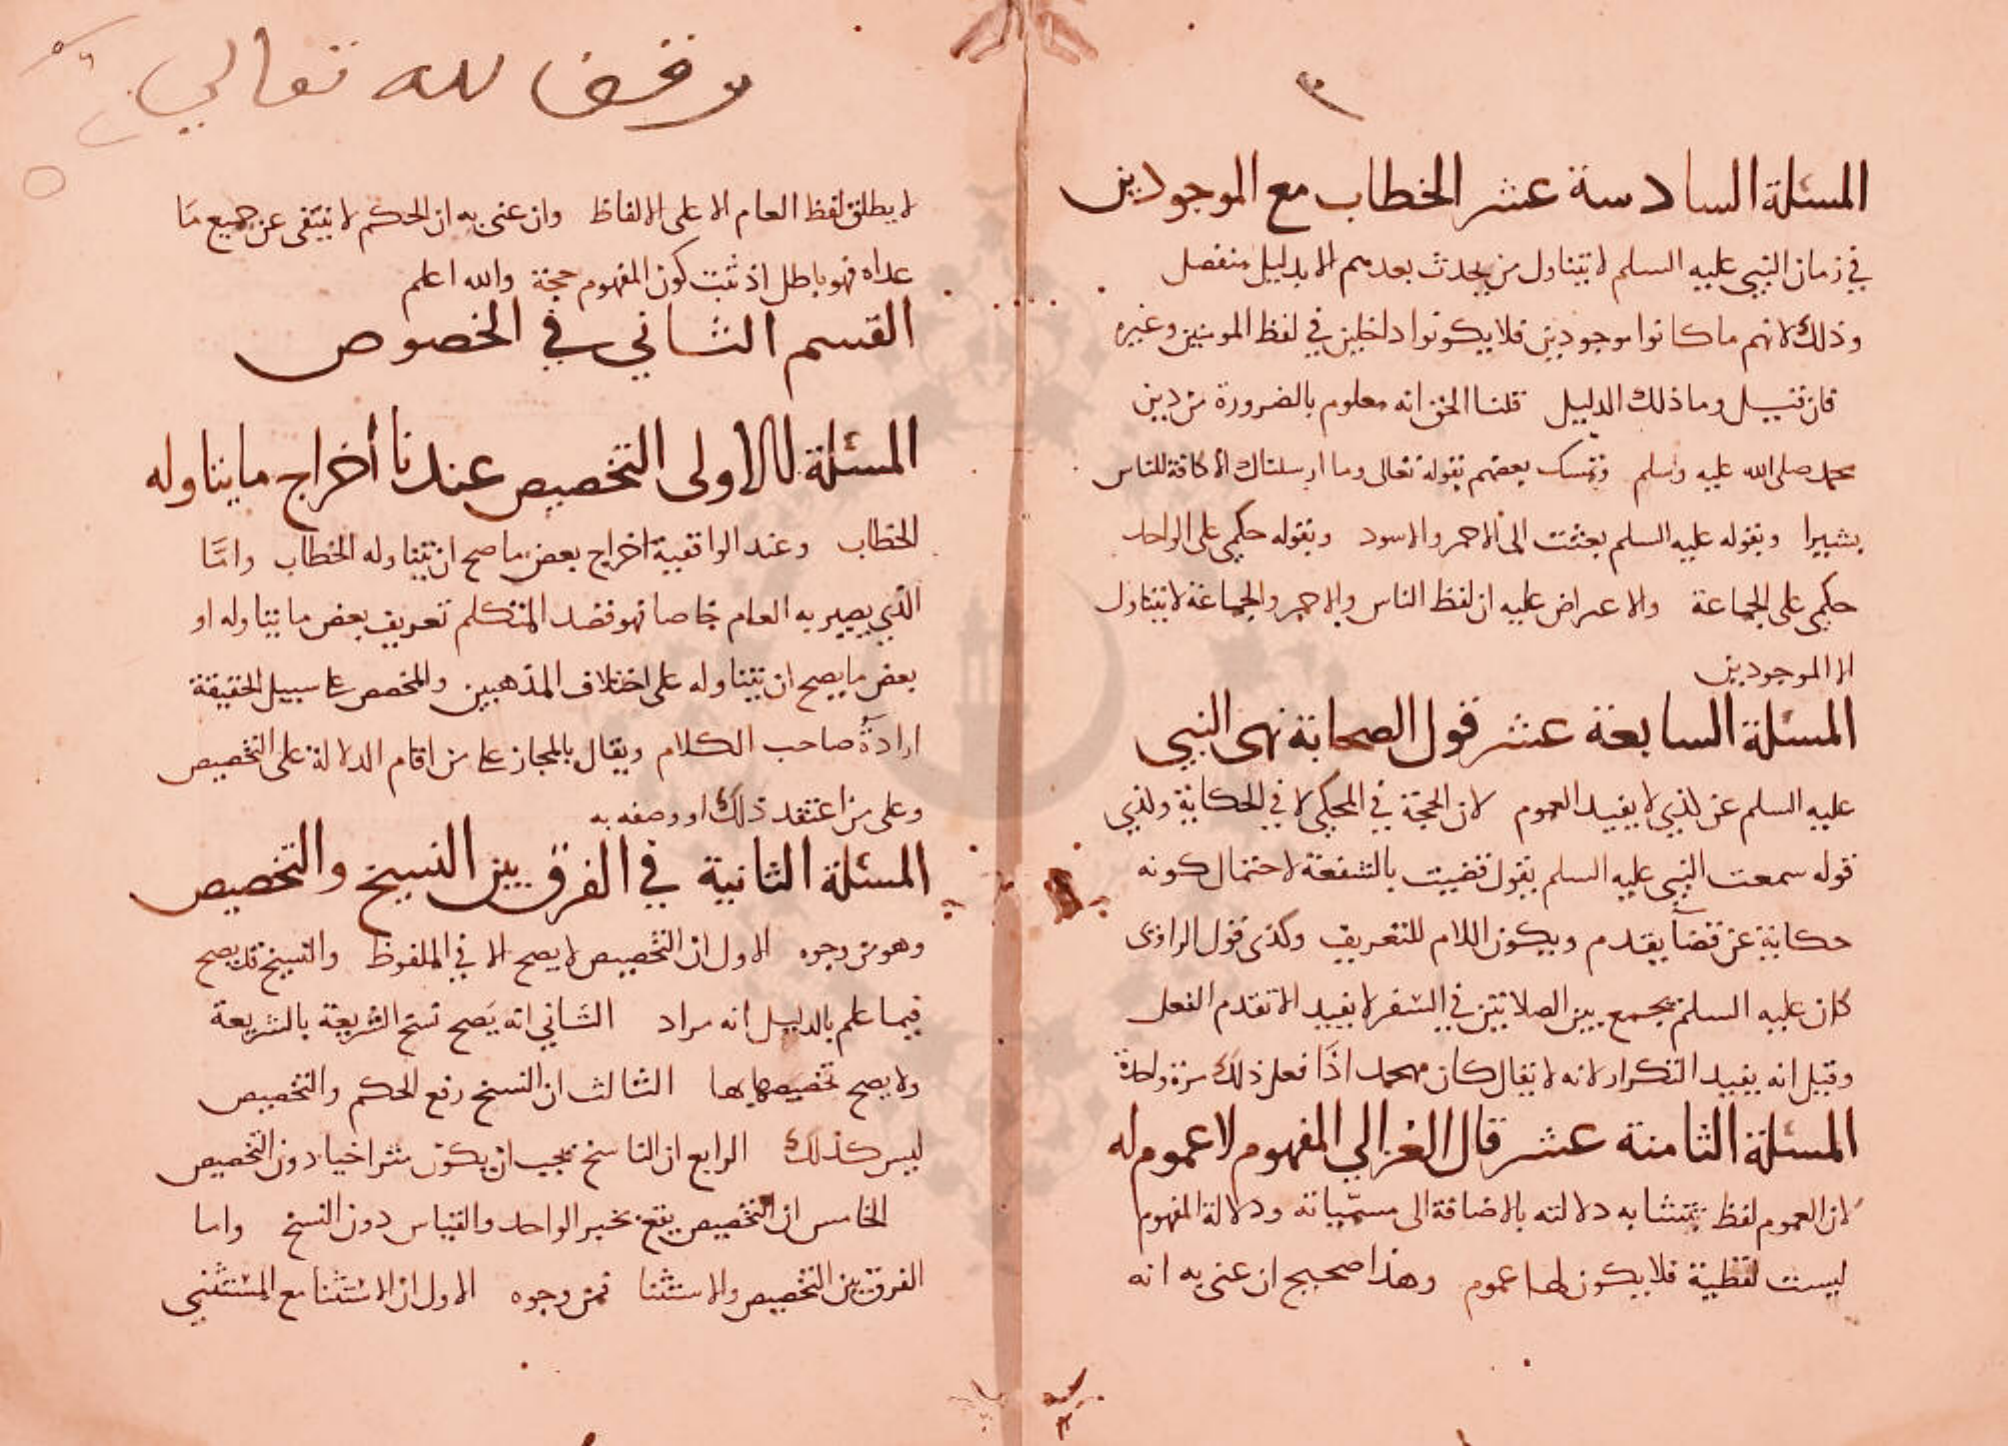 المسئلة السادسة عشر الخطاب مع الموجودين
في زمان النبي عليه السلم لا يتناول من يحدث بعدهم الا بدليل منفصل
وذلك لانهم ما كانوا موجودين فلا يكونوا داخلين في لفظ المومنين وغيره
فان قيل وما ذلك الدليل قلنا الحق انه معلوم بالضرورة من دين
محمد صلى الله عليه وسلم وتمسك بعضهم بقوله تعالى وما ارسلناك الا كافة للناس
بشيرا وبقوله عليه السلم بعثت الى الاحمر والاسود وبقوله حكمي على الواحد
حكمي على الجماعة والاعتراض عليه ان لفظ الناس والاحمر والجماعة لا يتناول
الا الموجودين
المسئلة السابعة عشر قول الصحابة نهى النبي
عليه السلم عن لذي لا يفيد العموم لان الحجة في المحكي لا في الحكاية ولذي
قوله سمعت النبي عليه السلم يقول قضيت بالشفعة لاحتمال كونه
حكاية عن قضآ يقدم ويكون اللام للتعريف وكذى قول الراوى
كان عليه السلم يجمع بين الصلاتين في السفر لا يفيد الا تقدم الفعل
وقيل انه يفيد التكرار لانه لا يقال كان محمد اذا فعل ذلك مرة واحدة
المسئلة الثامنة عشر قال الغزالي المفهوم لا عموم له
لان العموم لفظ تتشابه دلالته بالاضافة الى مسمياته ودلالة المفهوم
ليست لفظية فلا يكون لها عموم وهذا صحيح ان عنى به انه
وقف لله تعالي
لا يطلق لفظ العام الا على الالفاظ وان عنى به ان الحكم لا ينتفى عن جميع ما
عداه فهو باطل اذ ثبت كون المفهوم حجة والله اعلم
القسم الثاني في الخصوص
المسئلة الاولى التخصيص عندنا أخراج ما يتناوله
الخطاب وعند الواقفية اخراج بعض ما صح ان يتناوله الخطاب وامّا
الذي يصير به العام خاصا فهو قصد المتكلم تعريف بعض ما يتناوله او
بعض ما يصح ان يتناوله على اختلاف المذهبين والمخصص على سبيل الحقيقة
ارادة صاحب الكلام ويقال بالمجاز على من اقام الدلالة على التخصيص
وعلى من اعتقد ذلك او وصفه به
المسئلة الثانية في الفرق بين النسخ والتخصيص
وهو من وجوه الاول ان التخصيص لا يصح الا في الملفوظ والنسخ قد يصح
فيما علم بالدليل انه مراد الثاني انه يصح نسخ الشريعة بالشريعة
ولا يصح تخصيصها بها الثالث ان النسخ رفع الحكم والتخصيص
ليس كذلك الرابع ان الناسخ يجب ان يكون متراخيا دون التخصيص
الخامس ان التخصيص يقع بخبر الواحد والقياس دون النسخ واما
الفرق بين التخصيص والاستثنا فمن وجوه الاول ان الاستثنا مع المستثنى